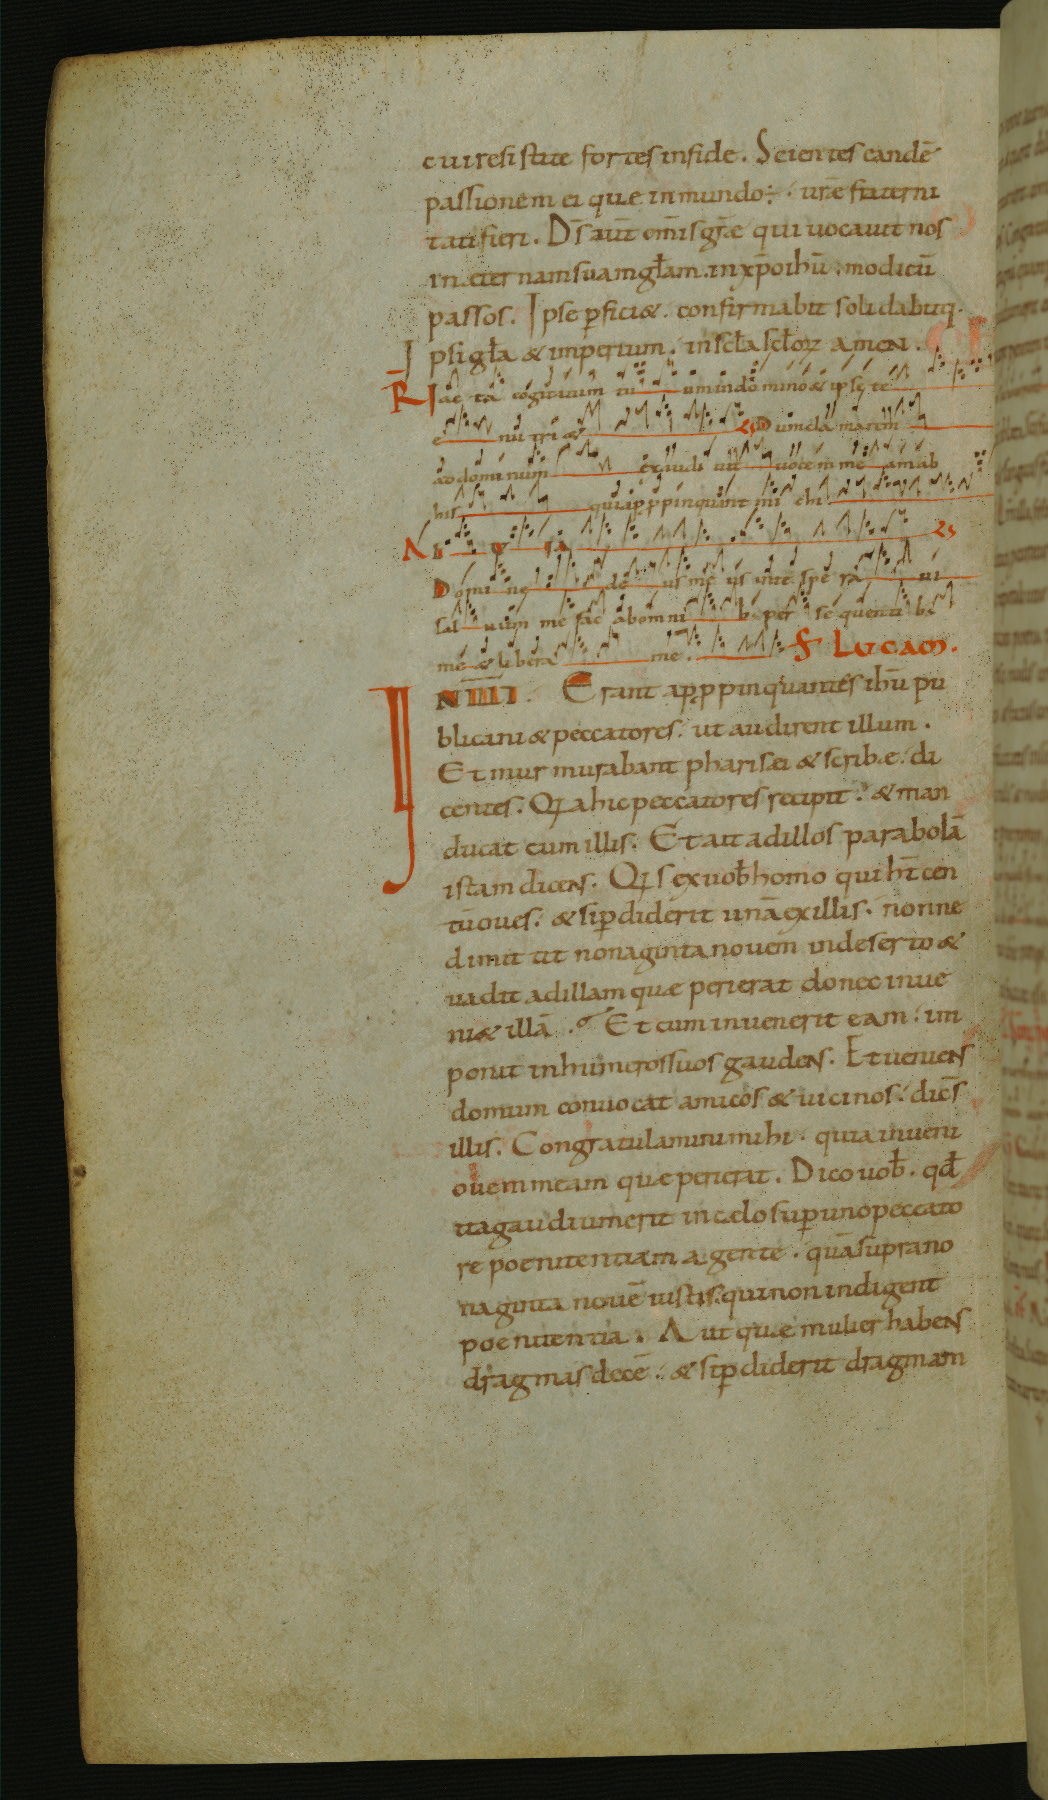 cui resistite fortes in fide. Scientes eandē
passionem ei que in mundo ÷. urē fraterni
tati fieri. Ds̄ aūt om̄is gr̄ę qui uocauit nos
in ęternam suam gƚam. in xp̄o ihū. modicū
passos. Ipse ꝑficiæ. confirmabit solidabitq.
Ipsi gƚa & imperium. in scƚa scƚoꝝ amen.
R̄ Iac ta cogitatum tu um in domino & ipse te
e nutri & Dum clamarem
ad dominum exaudi uit uocem me am ab
his qui apꝓpinquant mi chi.
A ł ę ia
Domine de us me us in te spe ra ui
saluum me fac ab omni b; per se quenti b;
me & libera me. S̄ Lucam.
IN IIII. Erant apꝓpinquantes ihū pu
blicani & peccatores. ut audirent illum.
Et murmurabant pharisei & scribæ. di
centes. Quia hic peccatores recipit. & man
ducat cum illis. Et ait ad illos parabolā
istam dicens. Quis ex uob̄ homo qui ht̄ cen
tū oues. & si ꝑdiderit unā ex illis. nonne
dimittit nonaginta nouem in deserto &
uadit ad illam quæ perierat donec inue
niæ illā. Et cum inuenerit eam. im
ponit in humeros suos gaudens. Et ueniens
domum conuocat amicos & uicinos. dicēs
illis. Congratulamini mihi. quia inueni
ouem meam quæ perierat. Dico uob̄. qđ
ita gaudium erit in cælo suꝑ uno peccato
re poenitentiam agente. quā supra no
naginta nouē iustis. qui non indigent
poenitentia. Aut quæ mulier habens
dragmas decē. & si ꝑdiderit dragmam